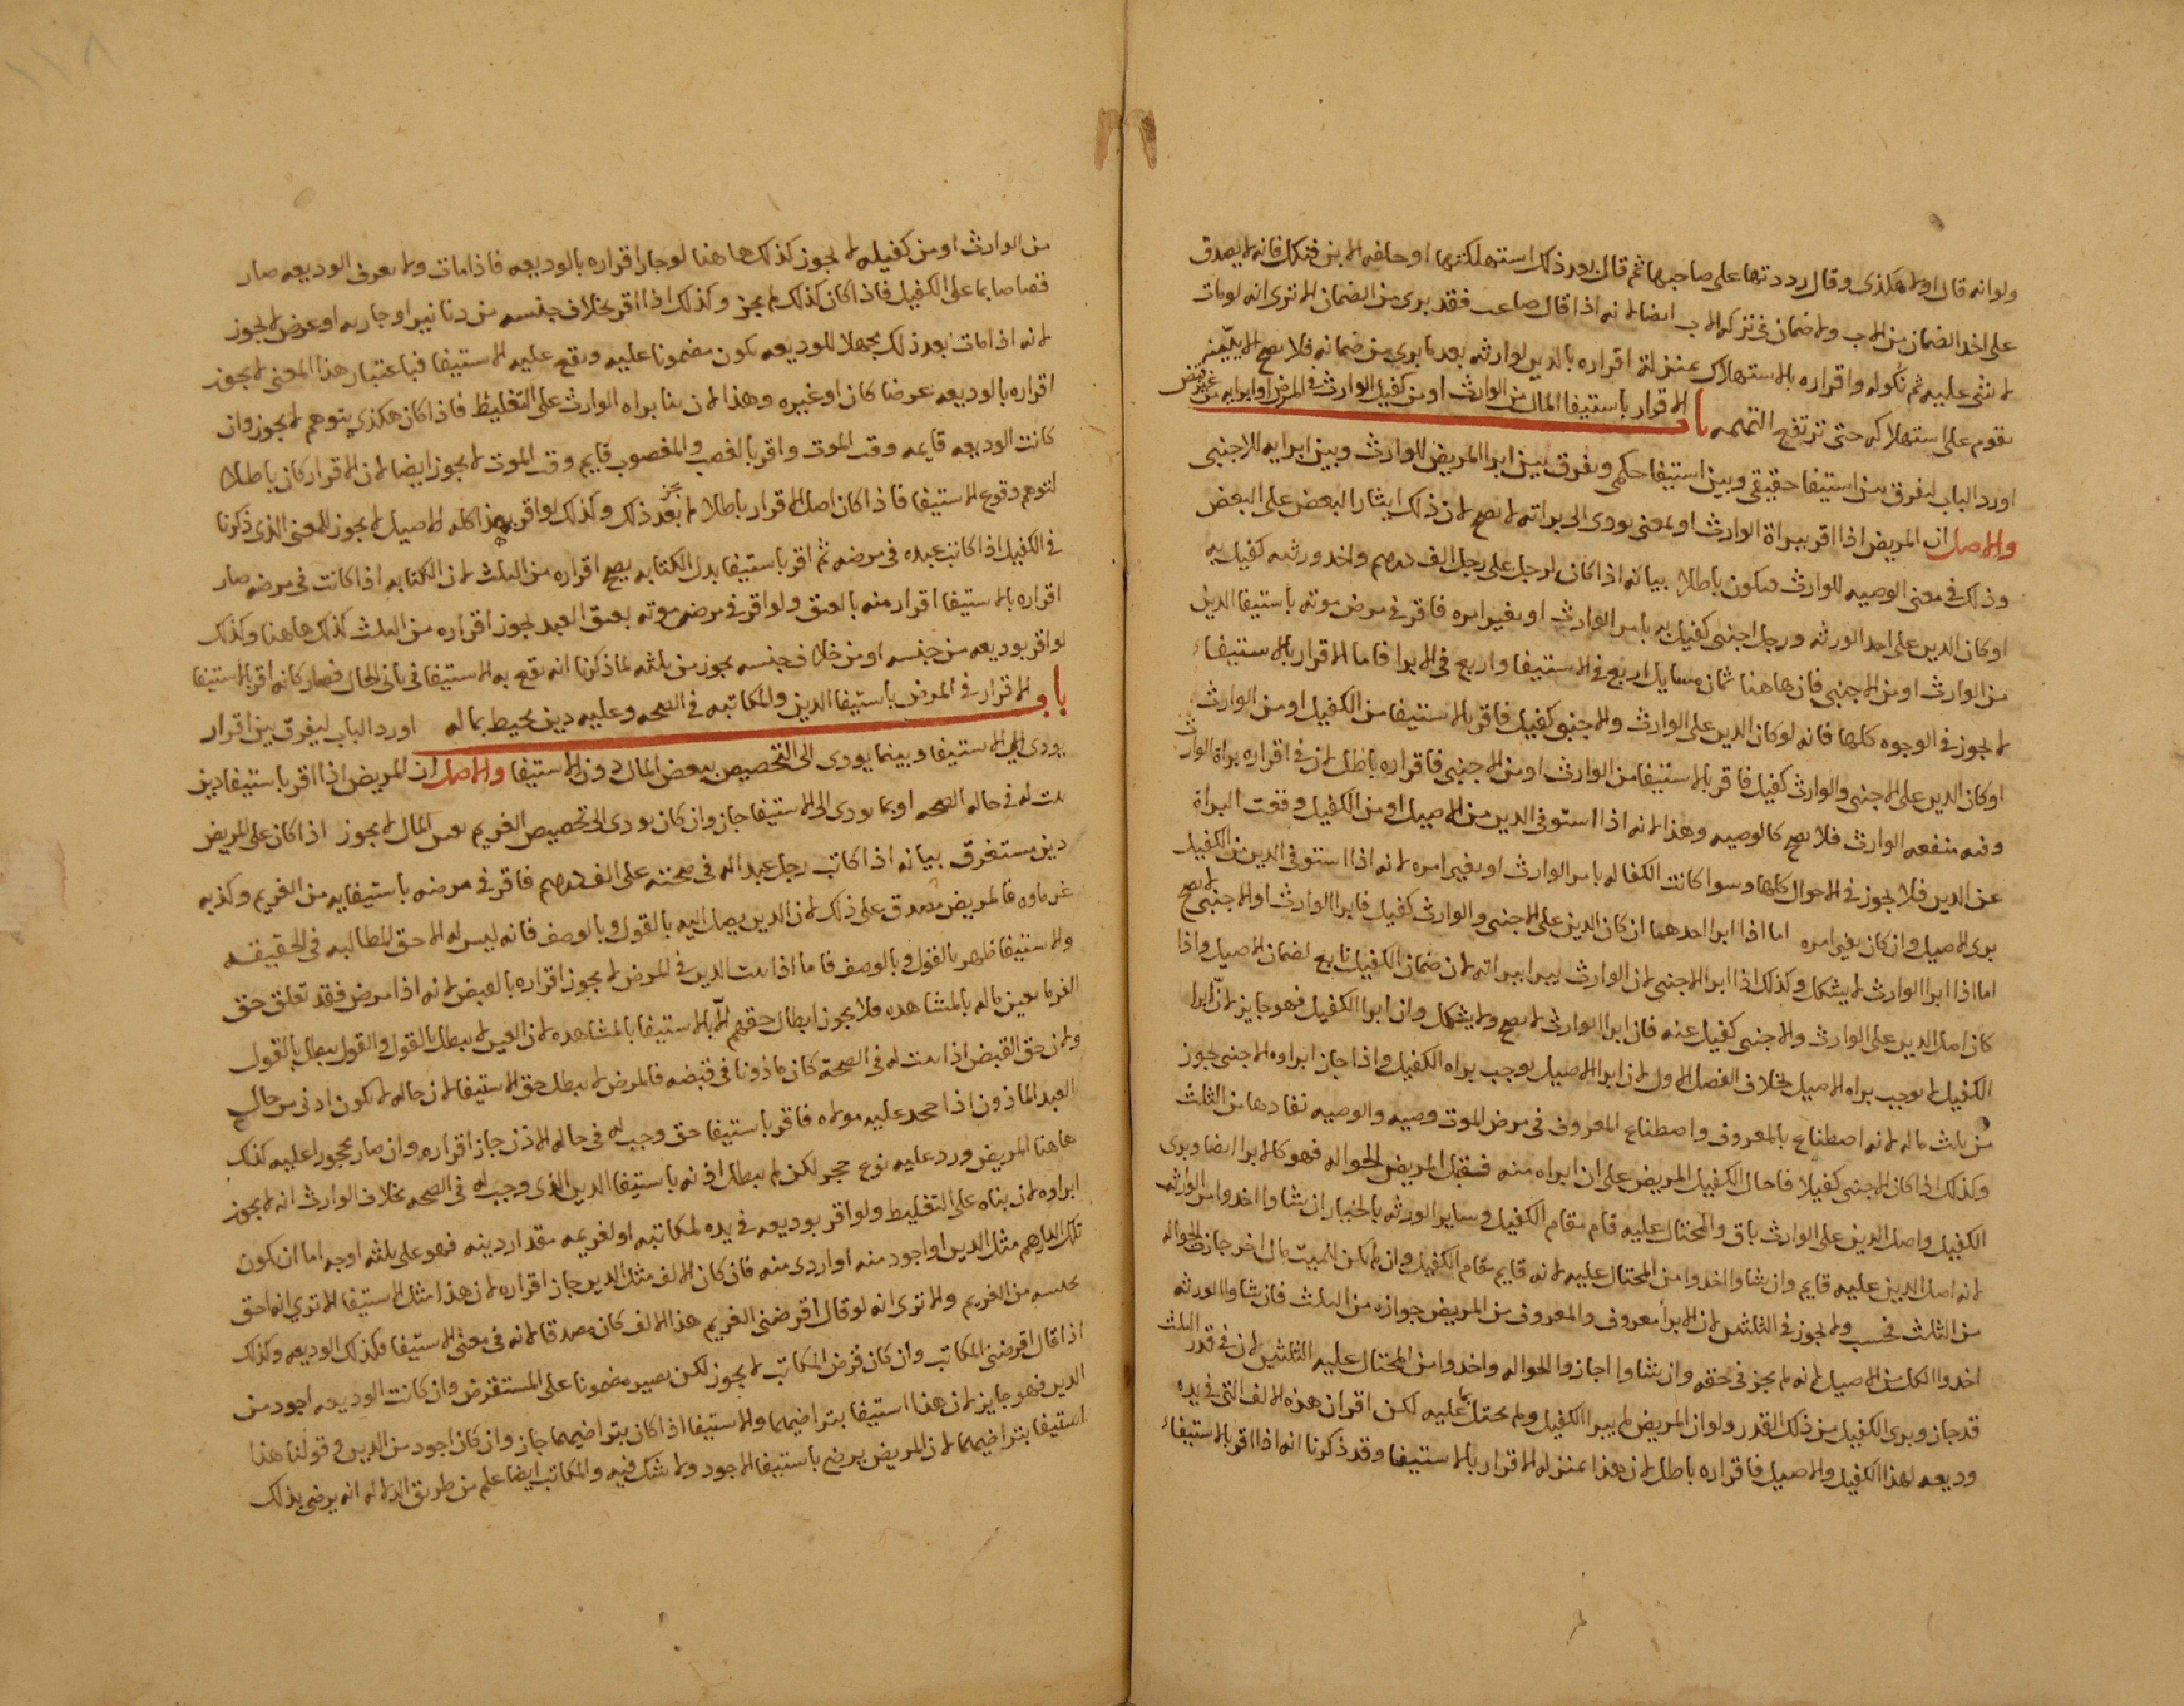 ولو انه قال اولا هكذي وقال رددتها على صاحبها ثم قال بعد ذلك استهلكتها او حلفه الابن فنكل فانه لا يصدق
على اخذ الضمان من الاب ولا ضمان في تركه الاب ايضا لانه اذا قال ضاعت فقد بري من الضمان الا تري انه لو مات
لا شي عليه ثم نكوله واقراره بالاستهلاك بمنزلة اقراره بالدين لوارثه بعد ما بري من ضمانه فلا يصح الا ببينه
تقوم على استهلاكه حتى ترتفع التهمه باب الاقرار باستيفا المال من الوارث او من كفيل الوارث في المرض او ابرايه من غير قبض
اورد الباب ليفرق بين استيفا حقيقي وبين استيفا حكمي ويفرق بين ابرا المريض للوارث وبين ابرايه للاجنبي
والاصل ان المريض اذا اقر ببراة الوارث او بمعنى يودي الى براته لا يصح لان ذلك ايثار البعض على البعض
وذلك في معنى الوصيه للوارث فيكون باطلا بيانه اذا كان لرجل على رجل الف درهم واحد ورثته كفيل به
او كان الدين على احد الورثه ورجل اجنبي كفيل به بامر الوارث او بغير امره فاقر في مرض موته باستيفا الدين
من الوارث او من الاجنبي فان هاهنا ثمان مسايل اربع في الاستيفا واربع في الابرا فاما الاقرار بالاستيفاء
لا يجوز في الوجوه كلها فانه لو كان الدين على الوارث والاجنبي كفيل فاقر بالاستيفا من الكفيل او من الوارث
او كان الدين على الاجنبي والوارث كفيل فاقر بالاستيفا من الوارث او من الاجنبي فاقراره باطل لان في اقراره براة الوارث
وفيه منفعه الوارث فلا يصح كالوصيه وهذا لانه اذا استوفى الدين من الاصيل او من الكفيل وقعت البراة
عن الدين فلا يجوز في الاحوال كلها وسوا كانت الكفاله بامر الوارث او بغير امره لانه اذا استوفى الدين من الكفيل
بري الاصيل وان كان بغير امره اما اذا ابرا احدهما ان كان الدين على الاجنبي والوارث كفيل فابرا الوارث او الاجنبي لا يصح
اما اذا ابرا الوارث لا يشكل وكذلك اذا ابرا الاجنبي لان الوارث يبرا ببراته لان ضمان الكفيل تابع لضمان الاصيل واذا
كان اصل الدين على الوارث والاجنبي كفيل عنه فان ابرا الوارث لا يصح ولا يشكل وان ابرا الكفيل فهو جايز لان ابرا
الكفيل لا يوجب براه الاصيل بخلاف الفصل الاول لان ابرا الاصيل يوجب براه الكفيل واذا جاز ابراوه الاجنبي يجوز
من ثلث ماله لانه اصطناع بالمعروف واصطناع المعروف في مرض الموت وصيه والوصيه نفادها من الثلث
وكذلك اذا كان الاجنبي كفيلا فاحال الكفيل المريض على ان ابراه منه فقبل المريض الحواله فهو كالابرا ايضا وبري
الكفيل واصل الدين على الوارث باق والمحتال عليه قام مقام الكفيل وساير الورثه بالخيار ان شاوا اخدوا من الوارث
لانه اصل الدين عليه قايم وان شاوا اخدوا من المحتال عليه لانه قايم مقام الكفيل وان لم يكن للميت مال اخر جازت الحواله
من الثلث فحسب ولا يجوز في الثلثين لان الابرا معروف والمعروف من المريض جوازه من الثلث فان شاوا الورثه
اخدوا الكل من الاصيل لانه لم يجز في حقه وان شاوا اجازوا الحواله واخدوا من المحتال عليه الثلثين لان في قدر الثلث
قد جاز وبري الكفيل من ذلك القدر ولو ان المريض لم يبرا الكفيل ولم يحتل بما عليه لكن اقر ان هذه الالف التي في يده
وديعه لهذا الكفيل والاصيل فاقراره باطل لان هذا بمنزله الاقرار بالاستيفا وقد ذكرنا انه اذا اقر بالاستيفاء
من الوارث او من كفيله لا يجوز كذلك هاهنا لو جاز اقراره بالوديعه فاذا مات ولا يعرف الوديعه صار
قصاصا بما على الكفيل فاذا كان كذلك لم يجز وكذلك اذا اقر بخلاف جنسه من دنانير او جاريه او عرض لا يجوز
لانه اذا مات بعد ذلك مجهلا للوديعه يكون مضمونا عليه ويقع عليه الاستيفا فباعتبار هذا المعنى لا يجوز
اقراره بالوديعه عرضا كان او غيره وهذا لان بنا براه الوارث على التغليظ فاذا كان هكذي يتوهم لا يجوز وان
كانت الوديعه قايمه وقت الموت واقر بالغصب والمغصوب قايم وقت الموت لا يجوز ايضا لان الاقرار كان باطلا
لتوهم وقوع الاستيفا فاذا كان اصل الاقرار باطلا لم يجز بعد ذلك وكذلك لو اقر بهذا كله الاصيل لا يجوز للمعنى الذي ذكرنا
في الكفيل اذا كاتب عبده في مرضه ثم اقر باستيفا بدل الكتابه يصح اقراره من الثلث لان الكتابه اذا كانت في مرضه صار
اقراره بالاستيفا اقرار منه بالعتق ولو اقر في مرض موته بعتق العبد يجوز اقراره من الثلث كذلك هاهنا وكذلك
لو اقر بوديعه من جنسه او من خلاف جنسه يجوز من ثلثه لما ذكرنا انه يقع به الاستيفا في ثاني الحال فصار كانه اقر بالاستيفا
باب الاقرار في المرض باستيفا الدين والمكاتبه في الصحه وعليه دين يحيط بماله اورد الباب ليفرق بين اقرار
يودي الى الاستيفا وبينما يودي الى التخصيص ببعض المال دون الاستيفا والاصل ان المريض اذا اقر باستيفا دين
ثبت له في حاله الصحه او بما يودي الى الاستيفا جاز وان كان يودي الى تخصيص الغريم بعين المال لا يجوز اذا كان على المريض
دين مستغرق بيانه اذا كاتب رجل عبدا له في صحته على الف درهم فاقر في مرضه باستيفايه من الغريم وكذبه
غرماوه فالمريض مصدق على ذلك لان الدين يصل اليه بالقول وبالوصف فانه ليس له الا حق المطالبه في الحقيقه
والاستيفا ظهر بالقول وبالوصف فاما اذا ثبت الدين في المرض لا يجوز اقراره بالقبض لانه اذا مرض فقد تعلق حق
الغرما بعين ماله بالمشاهده ولا يجوز ابطال حقهم الا بالاستيفا بالمشاهده لان العين لا يبطل بالقول والقول يبطل بالقول
ولان حق القبض اذا ثبت له في الصحة كان ماذونا في قبضه فالمرض لا يبطل حق الاستيفا لان حاله لا يكون ادنى من حال
العبد الماذون اذا حجر عليه مولاه فاقر باستيفا حق وجب له في حاله الاذن جاز اقراره وان صار محجورا عليه كذلك
هاهنا المريض ورد عليه نوع حجر لكن لم يبطل اذنه باستيفا الدين الذي وجب له في الصحه بخلاف الوارث انه لا يجوز
ابراوه لان بناه على التغليظ ولو اقر بوديعه في يده لمكاتبه او لغريمه مقدار دينه فهو على ثلثه اوجه اما ان يكون
تلك الدارهم مثل الدين او اجود منه او اردى منه فان كان الالف مثل الدين جاز اقراره لان هذا مثل الاستيفا الا تري انه احق
بحبسه من الغريم والا تري انه لو قال اقرضني الغريم هذا الالف كان مصدقا لانه في معنى الاستيفا فكذلك الوديعه وكذلك
اذا قال اقرضني المكاتب وان كان قرض المكاتب لا يجوز لكن يصير مضمونا على المستقرض وان كانت الوديعه اجود من
الدين فهو جايز لان هذا استيفا بتراضيهما والاستيفا اذا كان بتراضيهما جاز وان كان اجود من الدين وقولنا هذا
استيفا بتراضيهما لان المريض يرضى باستيفا الاجود ولا شك فيه والمكاتب ايضا علم من طريق الدلاله انه يرضى بذلك